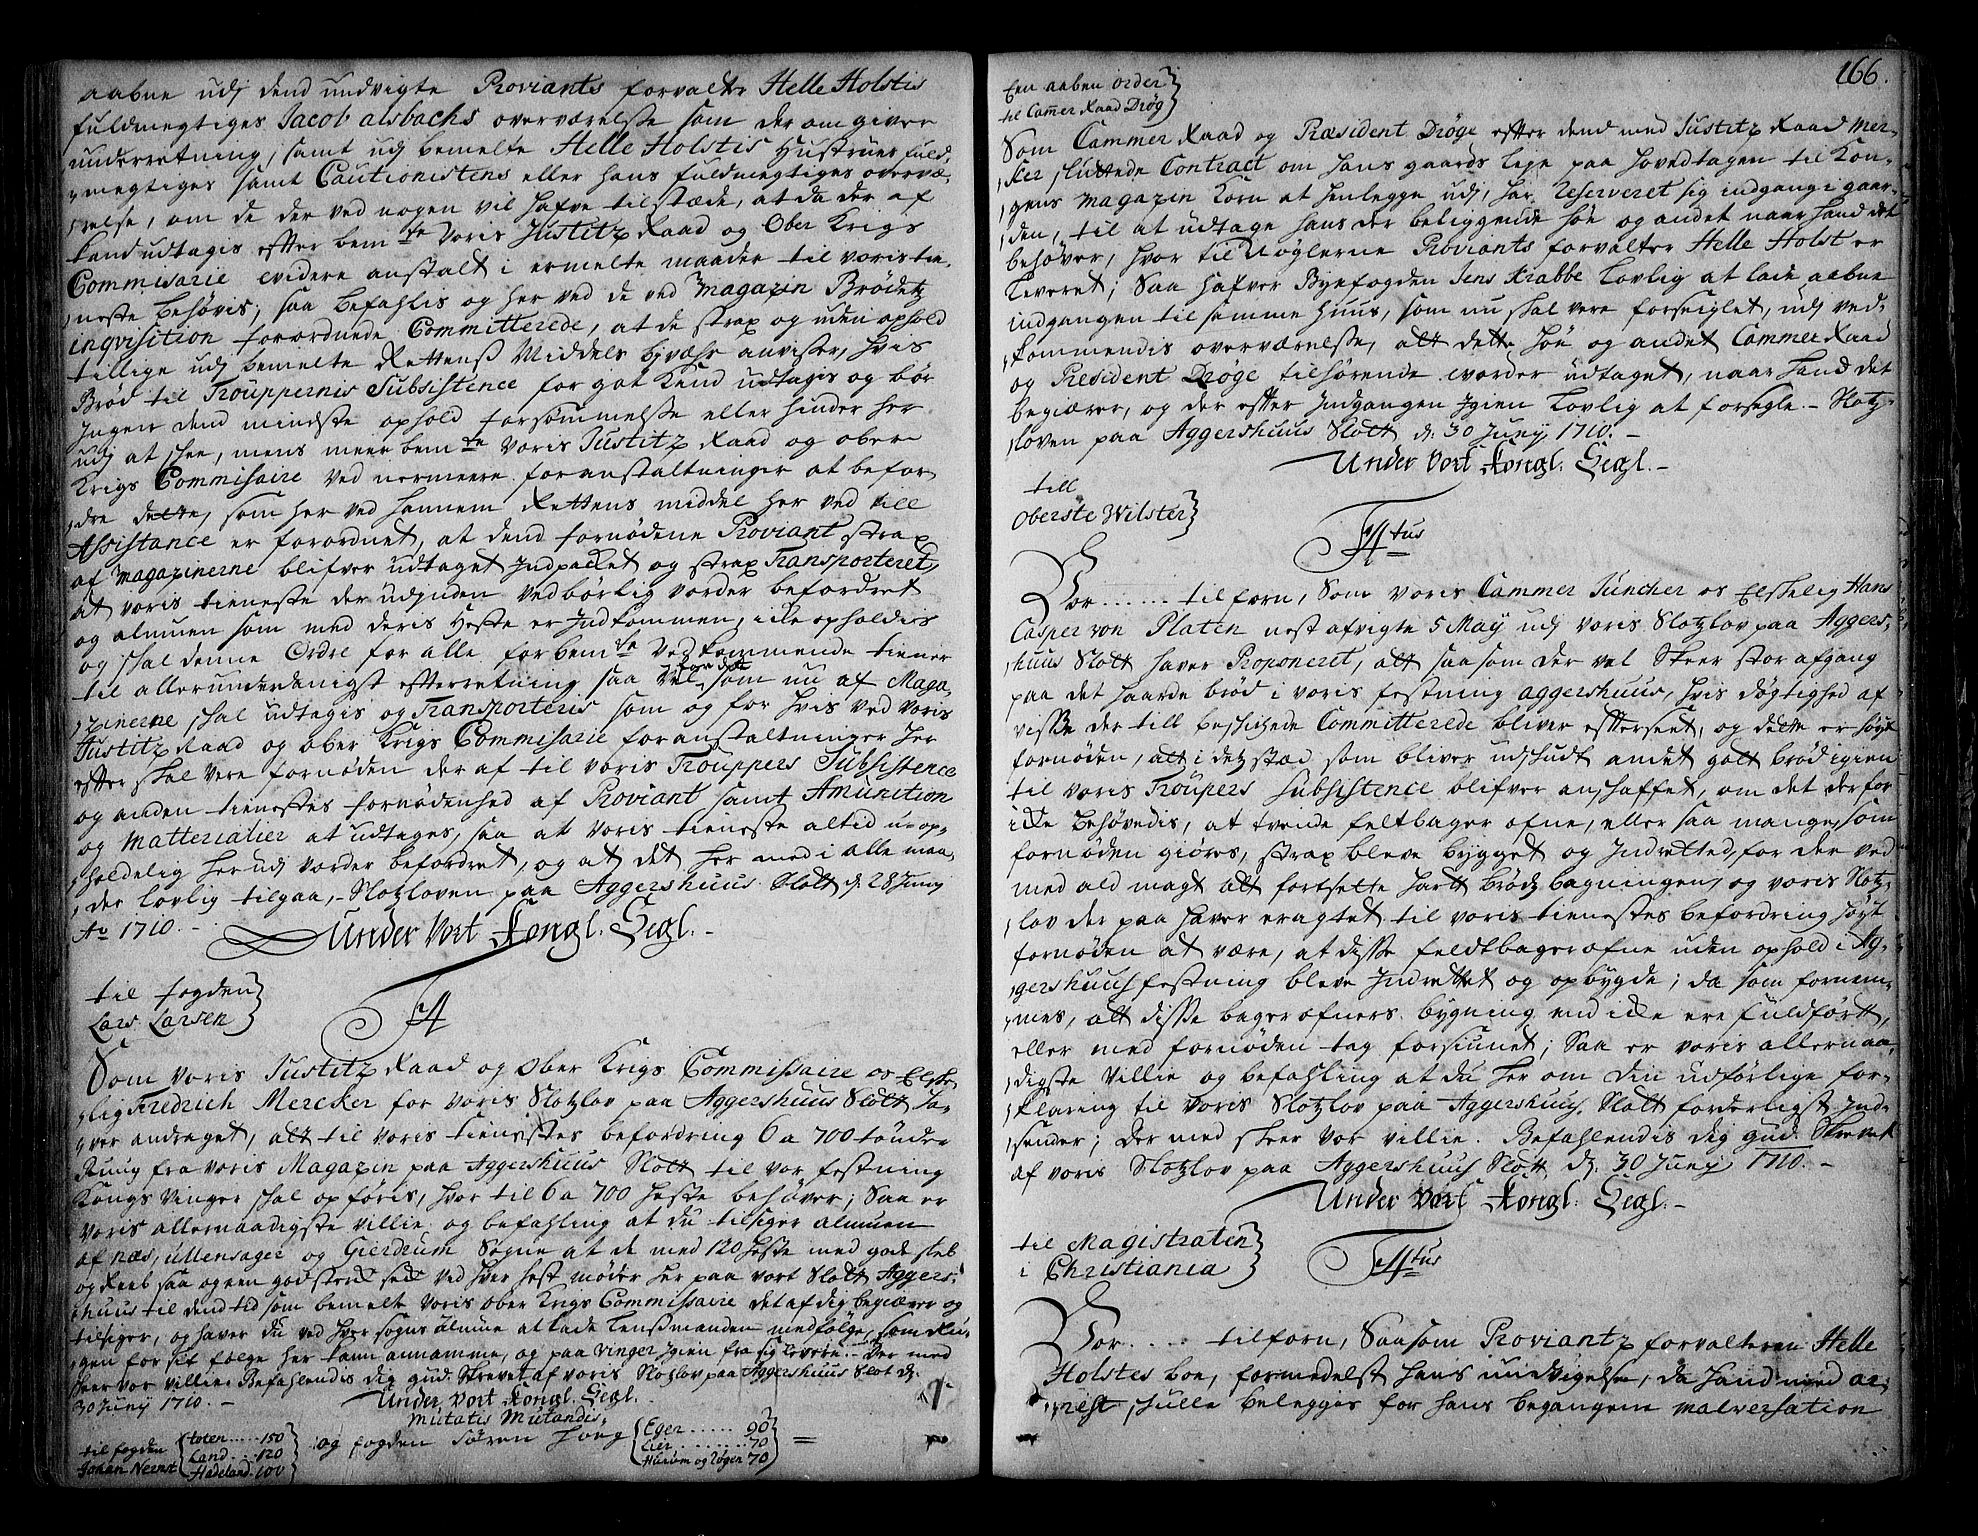 aabne udj dend undvigte Proviants forvalter Helle Holstis
fuldmegtiges Jacob alsbachs overværelsse som der om giver
underretning, samt udj bemelte Helle Holstis Hustrues fuld,
,megtiges samt Cautionistens eller hans fuldmegtiges overvæ,
,relse, om de der ved nogen vil hafve tilstæde, at da der af
kand udtagis efter bem.te Voris Justitz Raad og Ober Krigs
Commisarie videre anstalt i ermelte maader til voris tie,
,neste behøvis; saa befahlis og her ved de ved Magazin Brødetz
inqvisition forordnede Committerede, at de strax og uden ophold
tillige udj bemelte Rettens Middels hvæhr anvisser, hvis
Brød til Trouppernis Subsistence for got kand udtagis og bør
Ingen dend mindste ophold forsømmelsse eller hinder her
udj at skee, mens meer bem.te Voris Justitz Raad og ober
Krigs Commisaire ved nermere foranstaltninger at befor,
,dre dette, som her ved hannem Rettens middel her ved till
Assistance er forordnet, at dend fornødene Proviant strax
af Magazinerne blifver udtaget Indpacket og strax Transporteret,
at voris tieneste der udjnden vedbørlig vorder befordret
og almuen som med deris Heste er Indkommen, icke opholdis
og skal denne Ordre for alle forbem.te vedkommende tiener
til allerunderdanigst efterretning saa vel for det som nu af Maga,
,zinerne skal udtagis og Transporteris som og for hvis ved voris
Justitz Raad og ober Krigs Commisarie foranstaltninger her
efter skal vere fornøden der af til voris Trouppers Subsistence
og anden tienestes fornødenhed af Proviant samt Amunition
og Matterialier at udtages, saa at voris tieneste altid u-op,
,holdelig herudj vorder befordret, og at det her med i alle maa,
,der lovlig tilgaa, Slotzloven paa Aggershuus Slott d. 28 Juny
Ao 1710. -
Under Vort Kongl. Segl. -
til fogden
Lars Larsen
FA
Som voris Justitz Raad og Ober Krigs Commissaire os Elske,
,lig Fredrich Mercker for voris Slotzlov paa Aggershuus Slott ha,
,ver andraget, att til voris tienistes befordring 6 a 700 tønder
Rug fra voris Magazin paa Aggershuus Slott til vor festning
Kongs Vinger skal opføris, hvor til 6 a 700 heste behøver; Saa er
voris allernaadigste villie og befahling at du tilsiger almuen
af næs, ullensager og Gierdrum Sogne at de med 120 heste med gode
og Reeb saa og en god ved hver hest møder her paa vort Slott Aggers,
,huus til dend tid som bemelte voris ober Krigs Commissaire det af dig begiærer og
tilsiger, og haver du ved hver sogns almue at lade Lensmanden medfølge, som Ru,
,gen for sit følge her kand annamme, og paa Vinger Igien fra sig levere. Der med
skeer vor villie. Befahlendis dig gud. Skrevet af voris Slotzlov paa Aggershuus Slot d.
30 Juny 1710. -
Under Vort Kongl. Segl.
Mutatis Mutandis,
til fogden
Johan Nernst
toten...... 150
Land .... 120
Hadeland. 100
og fogden Søren
Eger ...... 90
Lier ........ 70
Hurum og Røgen 70
166.
Een aaben order
til Camer Raad Drøg
Som Cammer Raad og Præsident Drøge efter dend med Justitz Raad Mer,
,cker sluttede Contract om hans gaards leje paa hovedtagen til Kon,
,gens Magazin Korn at henlegge udj, har reserveret sig indgang i gaar,
,den, til at udtage hans der beliggende høe og andet naar hand det
behøver, hvor til Nøglerne Proviants forvalter Helle Holst er
leveret; Saa hafver Byefogden Jens Krabbe lovlig at lade aabne
indgangen til samme Huus, som nu skal vere forseiglet, udj ved,
,kommendis overværelsse, alt dette høe og andet Cammer Raad
og President Drøge tilhørende vorder udtaget, naar hand det
begiærer, og der efter Indgangen Igien lovlig at forsegle. - Slotz,
,loven paa Aggershuus Slott d. 30 Juny 1710. -
Under Vort Kongl. Segl. -
till
Oberste Wilster
FA tus
Vor ...... tilforn, Som voris Cammer Juncher os Elskelig Hans
Casper von Platen nest afvigte 5 May udj voris Slotzlov paa Aggers,
,huus Slott haver Proponeret, att saasom der vel skeer stor afgang
paa det haarde brød i voris festning aggershuus, hvis døgtighed af
visse der till beskikede Committerede bliver efterseet, og dette er høyt
fornøden, att i detz stæd som bliver udskudt andet gott brød igien
til voris Troupers Subsistence blifver anskaffet, om det der for
icke behøvedis, at tvende feltbager ofne, eller saa mange, som
fornøden giøres, strax bleve bygget og Indretted, for der ved
med ald magt att fortsette hart brødz bagningen, og voris Slotz,
,lov der paa haver eragtet til voris tienestes befordring høyt
fornøden at være, at disse feldtbager ofne uden ophold i Ag,
,gershuus festning bleve Indrettet og opbygde; da som fornem,
,mes, att disse bager ofners bygning end icke ere fuldført,
eller med fornøden tag forsiunet; Saa er voris allernaa,
,digste villie og befahling at du her om din udførlige for,
,klaring til voris Slotzlov paa Aggershuus Slott forderligst Ind,
,sender; der med skeer vor villie. Befahlendis dig gud. Skrevet
af voris Slotzlov paa Aggershuus Slott, d. 30 Juny 1710. -
Under Vort Kongl. Segl. -
til Magistraten
i Christiania
FA tus
Vor .... tilforn, Saasom Proviantz forvalteren Helle
Holstes boe, formedelst hans undvigelse, da hand med ar,
,rest skulle belegges for hans begangene Malversation